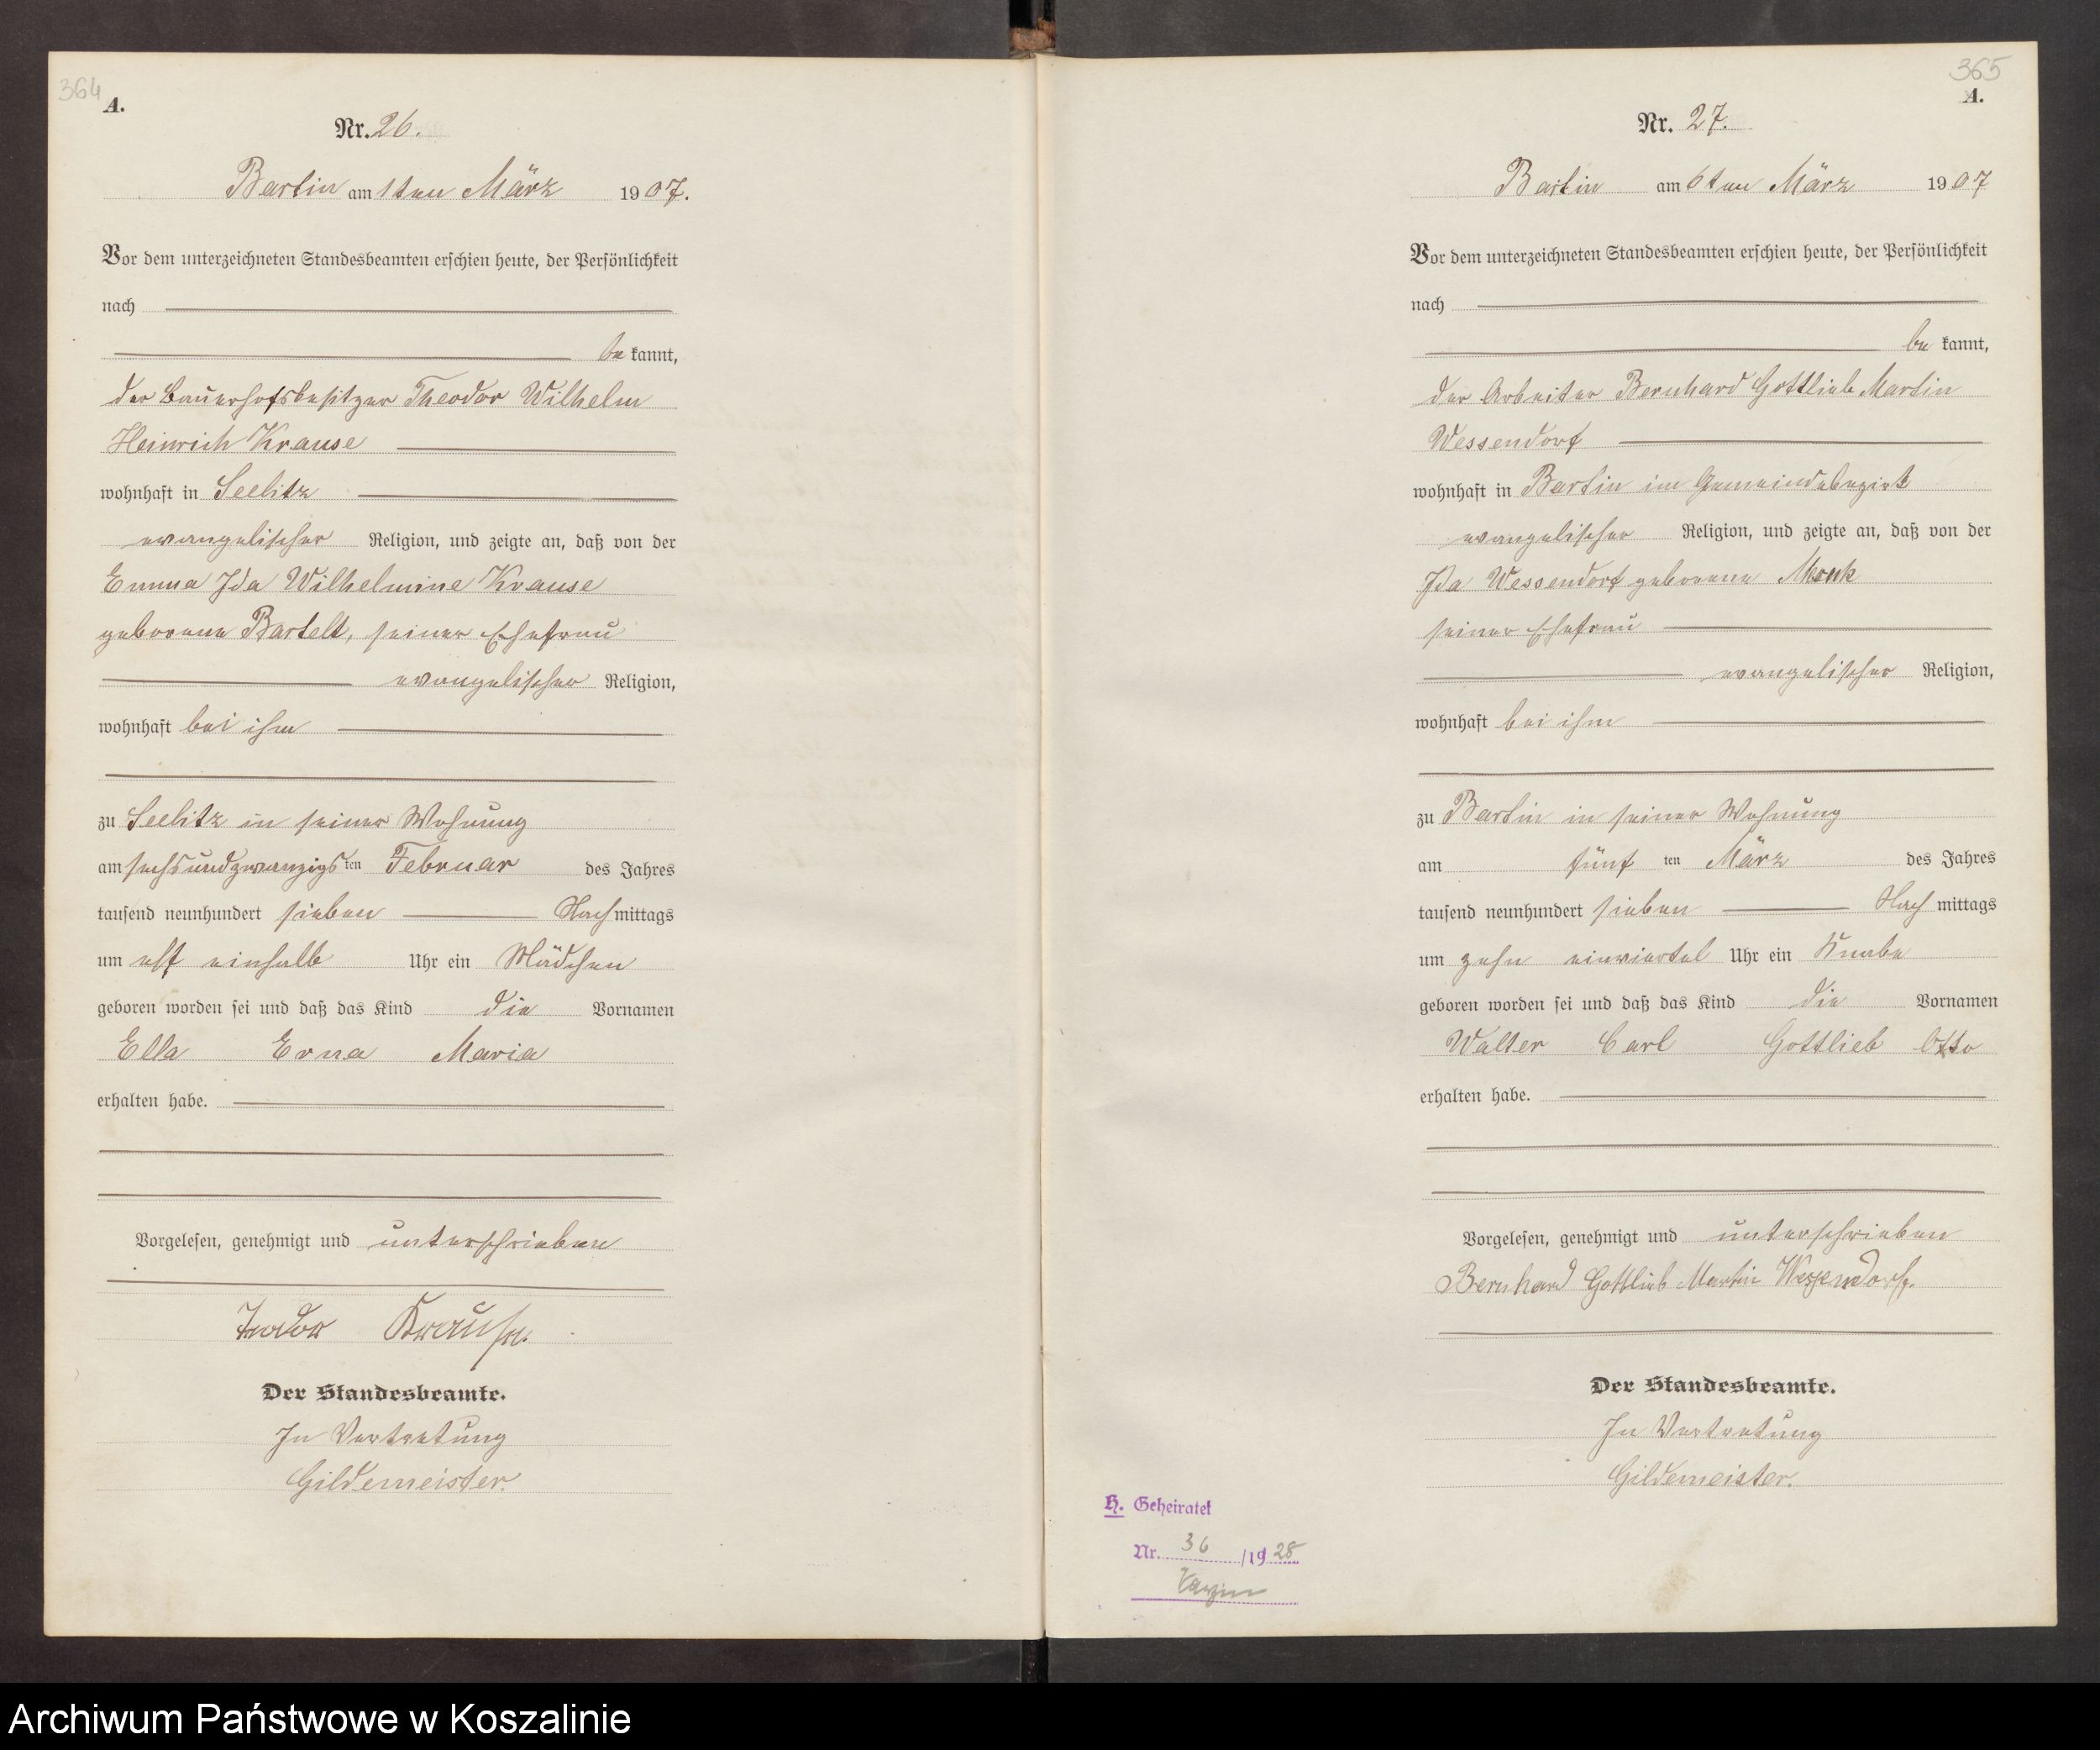 364
A.
Nr. 26.
Bartin am 1ten März 1907.
Vor dem unterzeichneten Standesbeamten erschien heute, der Persönlichkeit
nach
be kannt,
der Bauerhofsbesitzer Theodor Wilhelm
Heinrich Krause
wohnhaft in Seelitz
evangelischer Religion, und zeigte an, daß von der
Emma Ida Wilhelmine Krause
geborene Bartelt, seiner Ehefrau
evangelischer Religion,
wohnhaft bei ihm
zu Seelitz in seiner Wohnung
am sechsundzwanzigsten Februar des Jahres
tausend neunhundert sieben Nachmittags
um elf einhalb Uhr ein Mädchen
geboren worden sei und daß das Kind die Vornamen
Ella Erna Maria
erhalten habe.
Vorgelesen, genehmigt und unterschrieben
Teodor Krause.
Der Standesbeamte.
In Vertretung
Gildemeister.
365
A.
Nr. 27.
Bartin am 6ten März 1907
Vor dem unterzeichneten Standesbeamten erschien heute, der Persönlichkeit
nach
be kannt,
der Arbeiter Bernhard Gottlieb Martin
Wessendorf
wohnhaft in Bartin im Gemeindebezirk
evangelischer Religion, und zeigte an, daß von der
Ida Wessendorf geborene
seiner Ehefrau
evangelischer Religion,
wohnhaft bei ihm
zu Bartin in seiner Wohnung
am fünf ten März des Jahres
tausend neunhundert sieben Nach mittags
um zehn einviertel Uhr ein Knabe
geboren worden sei und daß das Kind die Vornamen
Walter Carl Gottlieb Otto
erhalten habe.
Vorgelesen, genehmigt und unterschrieben
Bernhard Gottlieb Martin Wessendorf.
Der Standesbeamte.
In Vertretung
Gildemeister.
H. Geheiratet
Nr. 36 /1928
Varzin
Archiwum Państwowe w Koszalinie